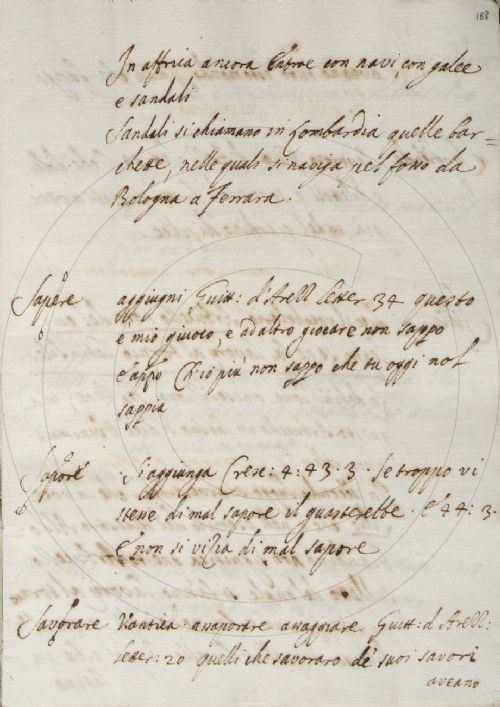 188
In affrica ancora Entroe con navi, con galee
e sandali
Sandali si chiamano in Lombardia quelle bar=
chette, nelle quali si naviga pel fosso da
Bologna a Ferrara.
Sapere aggiugni Guitt: d'Arell Letter 34 questo
è mio giuoco, e ad altro giocare non sappo
e appo Ch'io più non sappo che tu oggi nol
sappia
Sapore Si aggiunga Cresc: 4: 43. 3. Se troppo vi
stesse di mal sapore il guasterebbe. E 44: 3.
E non si vizia di mal sapore
Savorare Vantica assaporare assaggiare Guitt: d'Arell:
Letter: 20 quelli che savoraro de' suoi savori
aveano